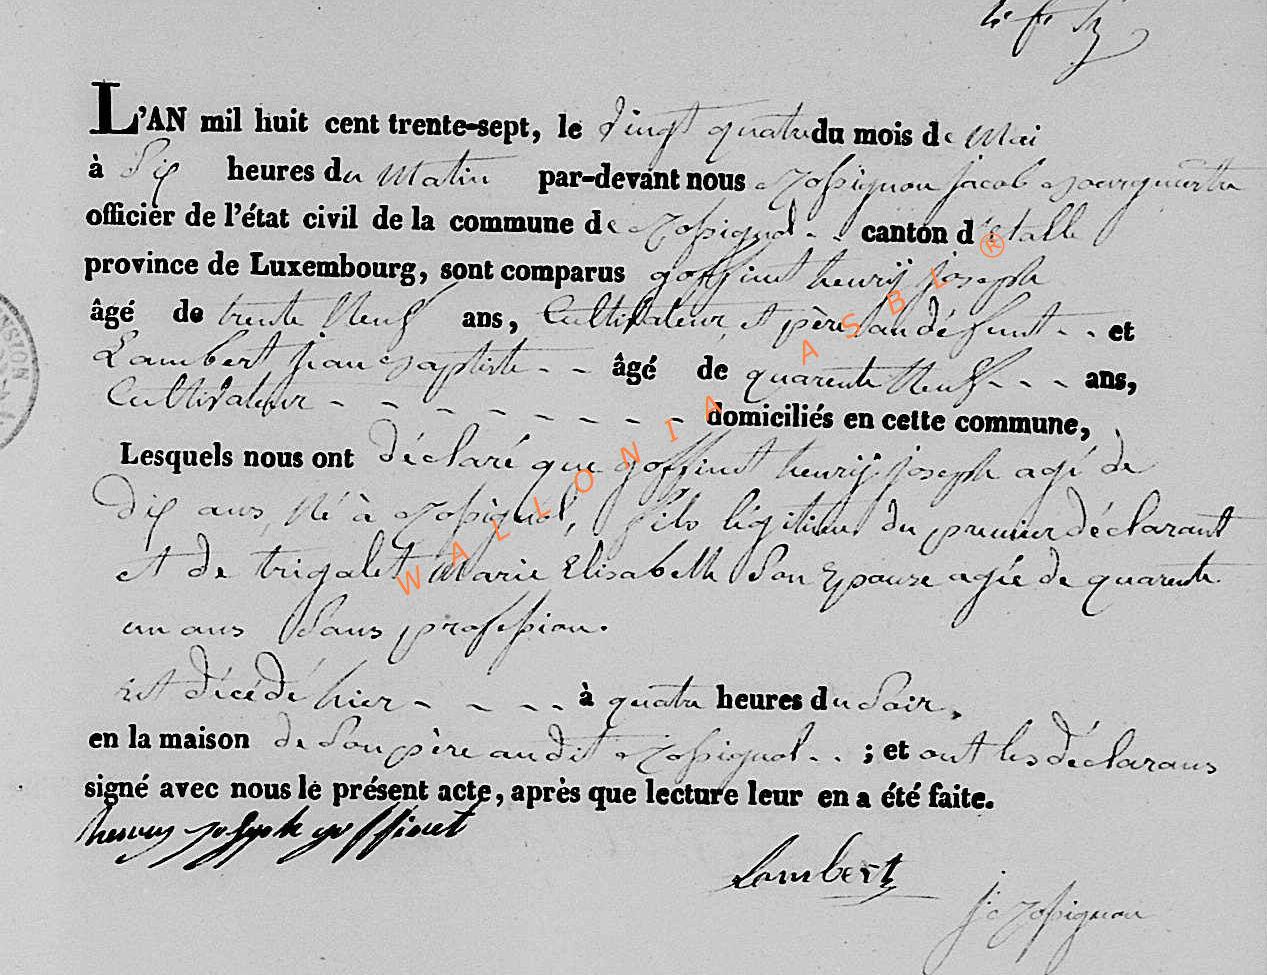 L'AN mil huit cent trente-sept, le Vingt quatre du mois de Mai
à Six heures du Matin par-devant nous Rossignon Jacob Bourguemestre
officier de l'état civil de la commune de Rossignol - - canton d'Etalle
province de Luxembourg, sont comparus goffinet henrÿ Joseph
âgé de trente Neuf ans, Cultivateur, et père au défunt - - et
Lambert jean Baptiste - - âgé de quarente Neuf - - - ans,
Cultivateur - - - - - - - - - domiciliés en cette commune,
Lesquels nous ont déclaré que goffinet henrÿ Joseph agé de
dix ans, Né à Rossignol, fils légitime du premier déclarant
et de trigalet Marie Elisabeth Son Epouse agée de quarente
un ans Sans profession.
Est décédé hier - - - - à quatre heures du Soir,
en la maison de Son père audit Rossignol - - ; et ont les déclarans
signé avec nous le présent acte, après que lecture leur en a été faite.
henry joseph goffinet
Lambert
J: Rossignon
WALLONIA ASBL ®